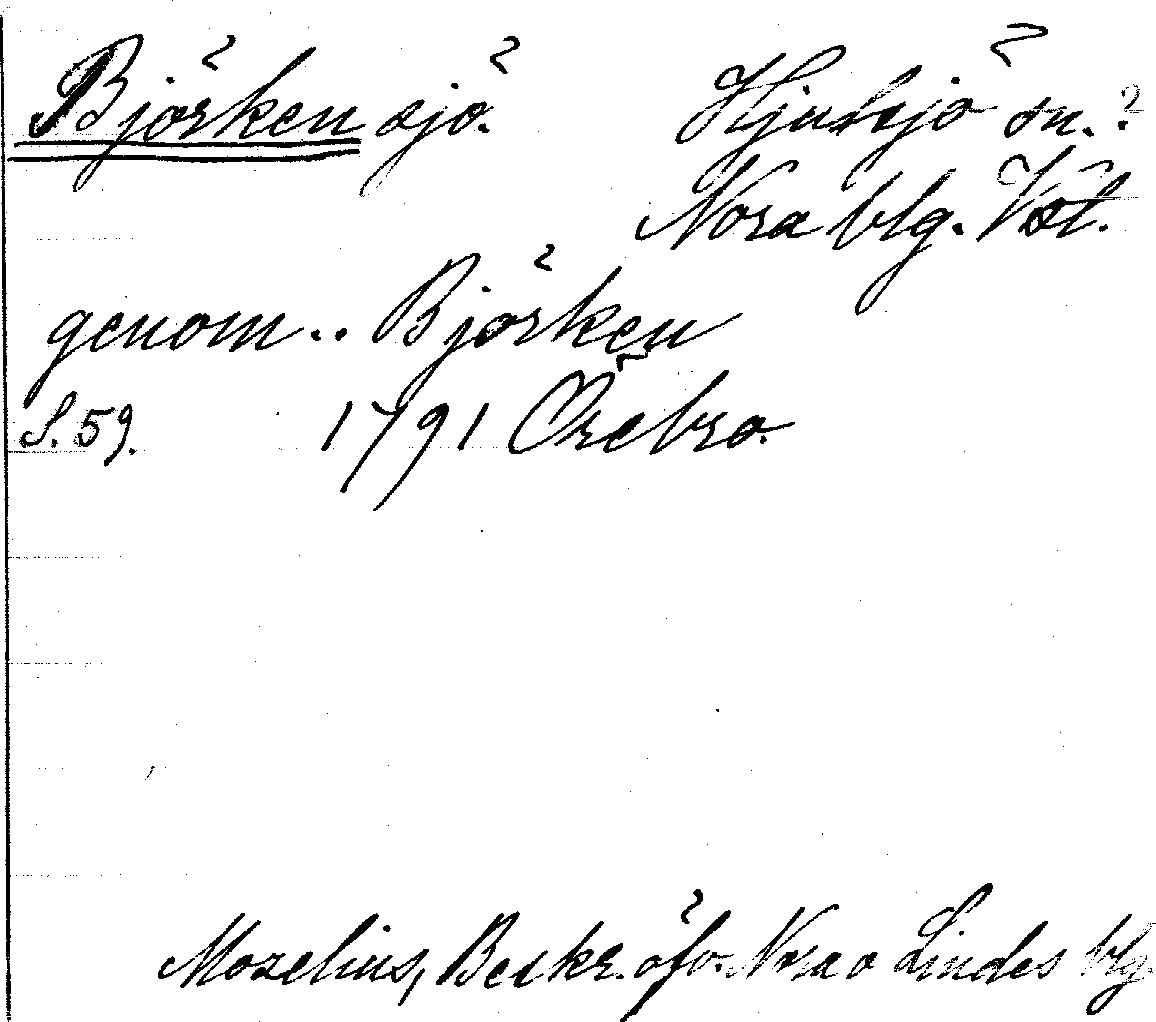 Björken sjö. Hjulsjö sn.?
Nora blg. Vstl.
genom.. Björken
S. 59. 1791 Örebro.
Mozelius, Beskr. öfv. Nora o Lindes blg.